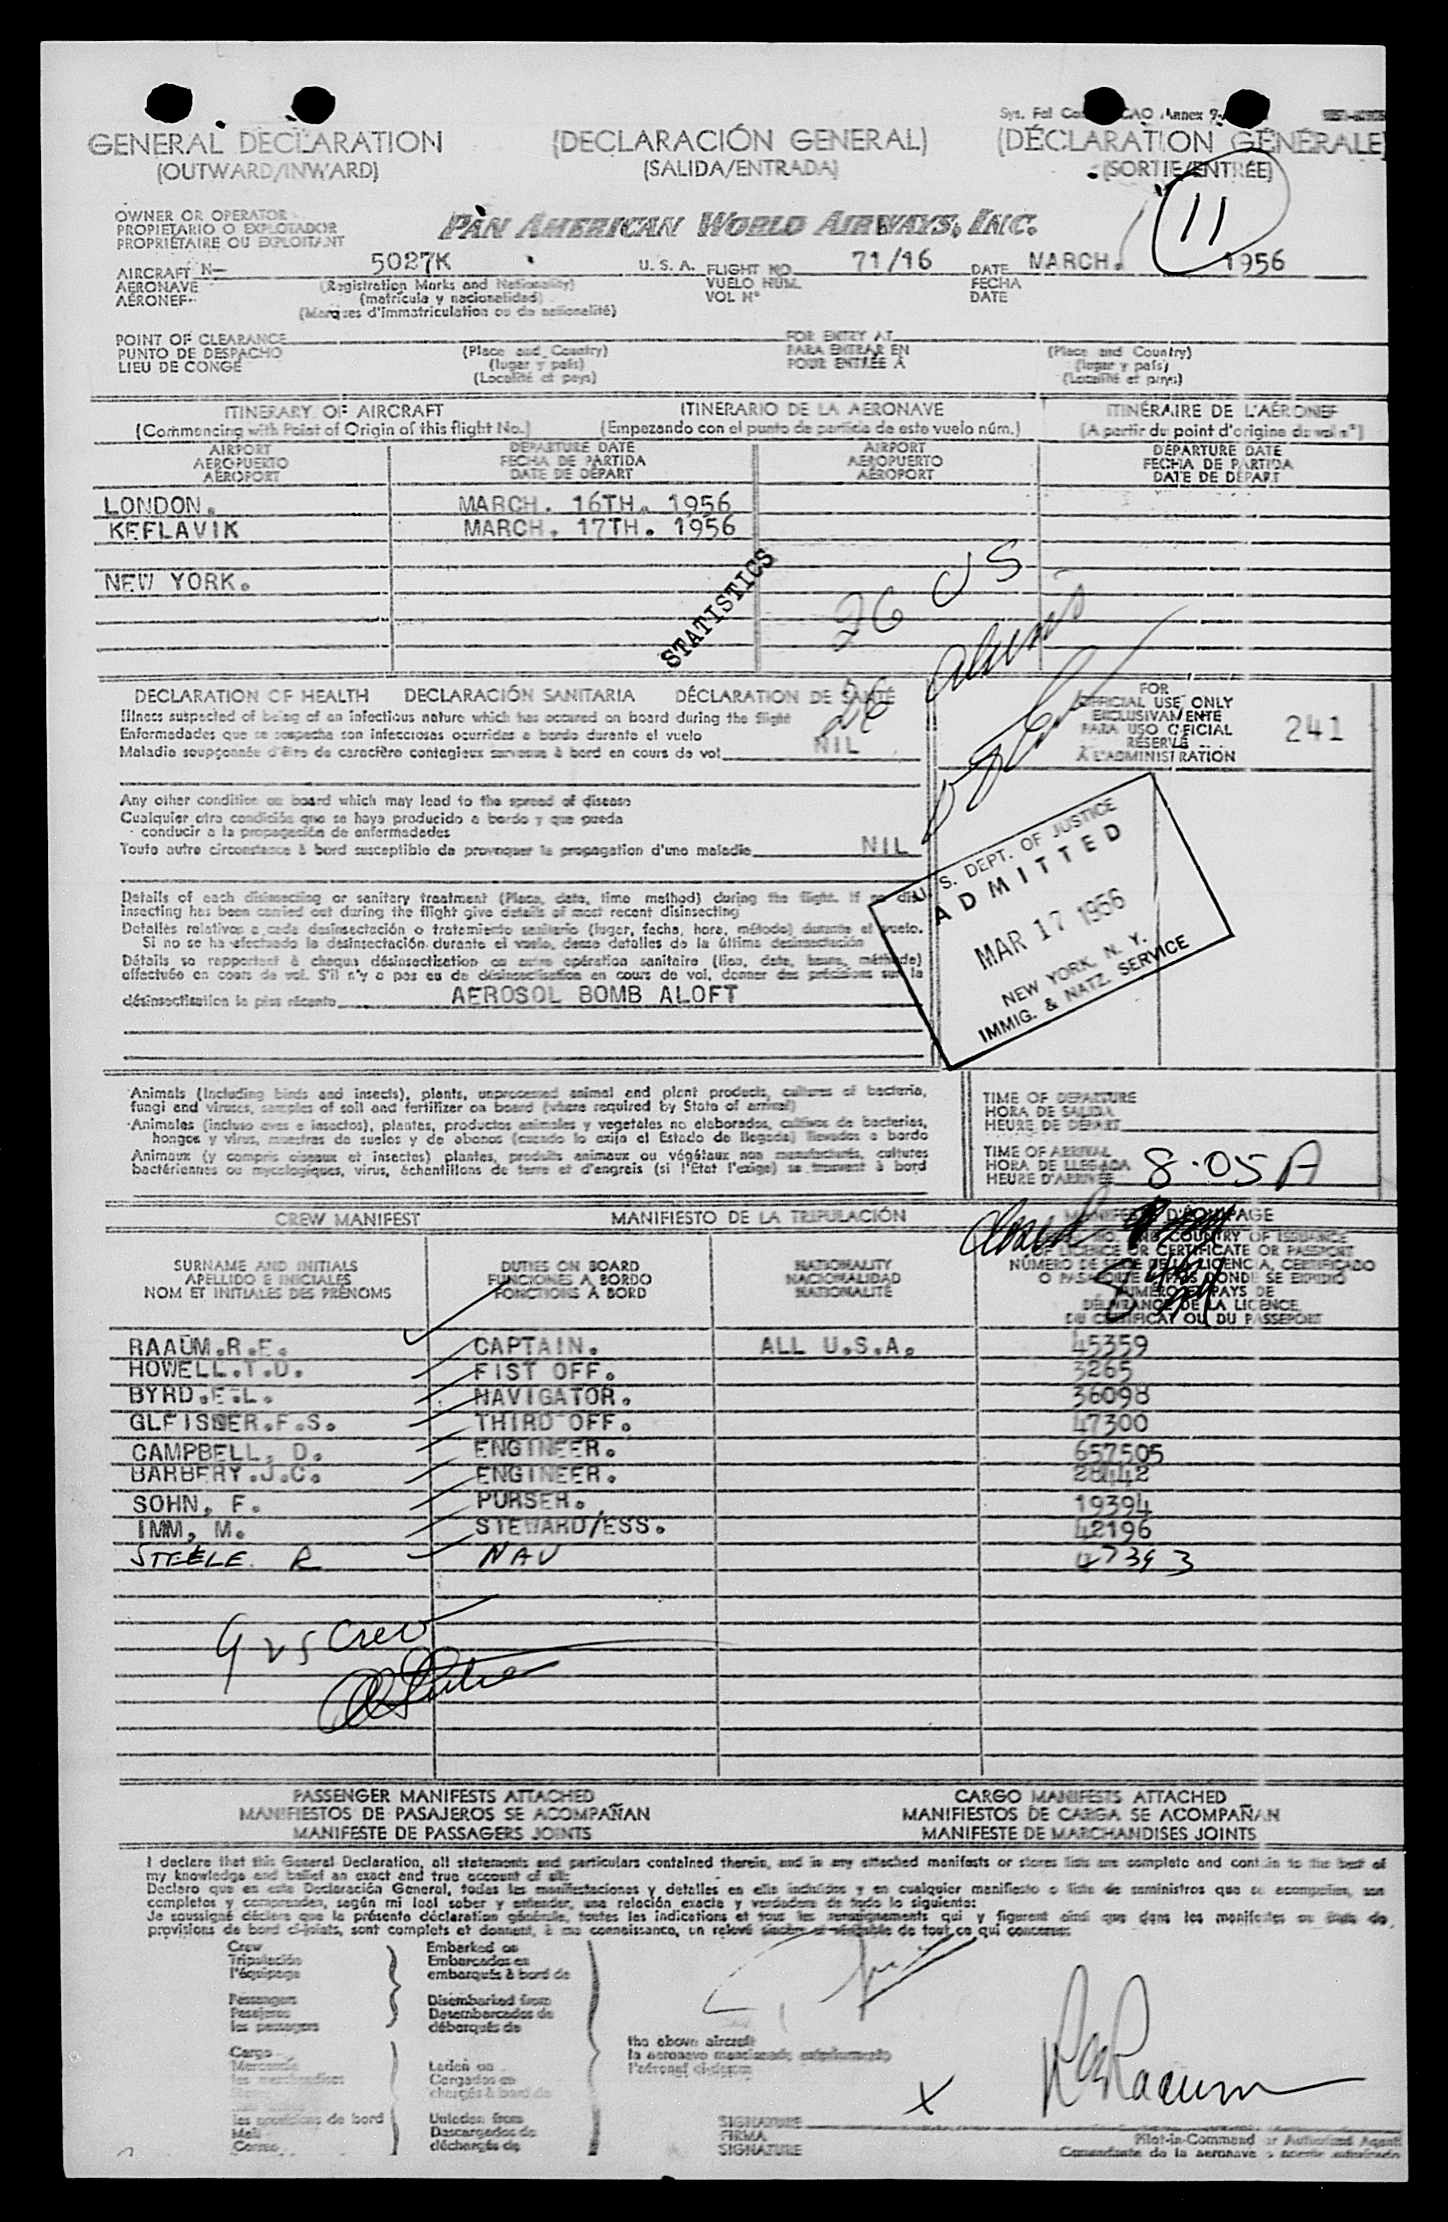 Sys. Fel AO Annex 9
GENERAL DECLARATION (DECLARACIÓN GENERAL) (DÉCLARATION GÉNÉRALE)
(OUTWARD/INWARD) (SALIDA/ENTRADA) (SORTIE/ENTRÉE)
11
OWNER OR OPERATOR
PROPIETARIO O EXPLOTADOR
PROPRIÉTAIRE OU EXPLOITANT
PAN AMERICAN WORLD AIRWAYS, INC.
AIRCRAFT N- 5027K U. S. A. FLIGHT NO. 71/16 DATE MARCH. 1956
AERONAVE (Registration Marks and Nationality) VUELO NUM. FECHA
AÉRONEF (matrícula y nacionalidad) VOL Nº DATE
(Marques d'immatriculation ou de nationalité)
POINT OF CLEARANCE FOR ENTRY AT
PUNTO DE DESPACHO (Place and Country) PARA ENTRAR EN (Place and Country)
LIEU DE CONGÉ (lugar y país) POUR ENTRÉE A (lugar y país)
(Localité et pays) (Localité et pays)
ITINERARY OF AIRCRAFT ITINERARIO DE LA AERONAVE ITINÉRAIRE DE L'AÉRONEF
(Commencing with Point of Origin of this flight No.) (Empezando con el punto de partida de este vuelo núm.) (A partir du point d'origine du vol nº)
AIRPORT DEPARTURE DATE AIRPORT DEPARTURE DATE
AEROPUERTO FECHA DE PARTIDA AEROPUERTO FECHA DE PARTIDA
AÉROPORT DATE DE DÉPART AÉROPORT DATE DE DÉPART
LONDON. MARCH. 16TH. 1956
KEFLAVIK MARCH. 17TH. 1956
NEW YORK.
STATISTICS
26 US
26 aliens
DECLARATION OF HEALTH DECLARACIÓN SANITARIA DÉCLARATION DE SANTÉ
Illness suspected of being of an infectious nature which has occured on board during the flight
Enfermedades que se sospecha son infecciosas ocurridas a bordo durante el vuelo
Maladie soupçonnée d'être de caractère contagieux survenue à bord en cours de vol NIL
FOR
OFFICIAL USE ONLY
EXCLUSIVAMENTE
PARA USO OFICIAL
RÉSERVÉ
À L'ADMINISTRATION
241
Any other condition on board which may lead to the spread of disease
Cualquier otra condición que se haya producido a bordo y que pueda
conducir a la propagación de enfermedades
Toute autre circonstance à bord susceptible de provoquer la propagation d'une maladie NIL
U. S. DEPT. OF JUSTICE
ADMITTED
MAR 17 1956
NEW YORK, N. Y.
IMMIG. & NATZ. SERVICE
Details of each disinsecting or sanitary treatment (Place, date, time method) during the flight. If no dis-
insecting has been carried out during the flight give details of most recent disinsecting
Detalles relativos a cada desinsectación o tratamiento sanitario (lugar, fecha, hora, método) durante el vuelo.
Si no se ha efectuado la desinsectación durante el vuelo, dense detalles de la última desinsectación
Détails se rapportant à chaque désinsectisation ou autre opération sanitaire (lieu, date, heure, méthode)
effectuée en cours de vol. S'il n'y a pas eu de désinsectisation en cours de vol, donner des précisions sur la
désinsectisation la plus récente AEROSOL BOMB ALOFT
Animals (Including birds and insects), plants, unprocessed animal and plant products, cultures of bacteria,
fungi and viruses, samples of soil and fertilizer on board (where required by State of arrival)
Animales (incluso aves e insectos), plantas, productos animales y vegetales no elaborados, cultivos de bacterias,
hongos y virus, muestras de suelos y de abonos (cuando lo exija el Estado de llegada) llevados a bordo
Animaux (y compris oiseaux et insectes) plantes, produits animaux ou végétaux non manufacturés, cultures
bactériennes ou mycologiques, virus, échantillons de terre et d'engrais (si l'État l'exige) se trouvant à bord
TIME OF DEPARTURE
HORA DE SALIDA
HEURE DE DÉPART
TIME OF ARRIVAL
HORA DE LLEGADA
HEURE D'ARRIVÉE 8.05 A
CREW MANIFEST MANIFIESTO DE LA TRIPULACIÓN MANIFESTE D'ÉQUIPAGE
SURNAME AND INITIALS DUTIES ON BOARD NATIONALITY NO. AND COUNTRY OF ISSUANCE
APELLIDO E INICIALES FUNCIONES A BORDO NACIONALIDAD OF LICENCE OR CERTIFICATE OR PASSPORT
NOM ET INITIALES DES PRÉNOMS FONCTIONS À BORD NATIONALITÉ NÚMERO DE SERIE DE LA LICENCIA, CERTIFICADO
O PASAPORTE PAÍS DONDE SE EXPIDIÓ
NUMÉRO ET PAYS DE
DÉLIVRANCE DE LA LICENCE
DU CERTIFICAT OU DU PASSEPORT
RAAUM.R.E. CAPTAIN. ALL U.S.A. 45359
HOWELL.T.D. FIST OFF. 3265
BYRD.E.L. NAVIGATOR. 36098
GLEISNER.F.S. THIRD OFF. 47300
CAMPBELL, D. ENGINEER. 657505
BARBERY.J.C. ENGINEER. 28442
SOHN, F. PURSER. 19394
IMM, M. STEWARD/ESS. 42196
STEELE. R NAV 47393
9 US Crew
PASSENGER MANIFESTS ATTACHED CARGO MANIFESTS ATTACHED
MANIFIESTOS DE PASAJEROS SE ACOMPAÑAN MANIFIESTOS DE CARGA SE ACOMPAÑAN
MANIFESTE DE PASSAGERS JOINTS MANIFESTE DE MARCHANDISES JOINTS
I declare that this General Declaration, all statements and particulars contained therein, and in any attached manifests or stores lists are complete and contain to the best of
my knowledge and belief an exact and true account of all:
Declaro que en esta Declaración General, todas las manifestaciones y detalles en ella incluidos y en cualquier manifiesto o lista de suministros que se acompañen, son
completos y comprenden, según mi leal saber y entender, una relación exacta y verdadera de todo lo siguiente:
Je soussigné déclare que la présente déclaration générale, toutes les indications et tous les renseignements qui y figurent ainsi que dans les manifestes ou états de
provisions de bord ci-joints, sont complets et donnent, à ma connaissance, un relevé sincère et véritable de tout ce qui concerne:
Crew Embarked on
Tripulación Embarcados en
l'équipage embarqués à bord de
Passengers Disembarked from
Pasajeros Desembarcados de
les passagers débarqués de
the above aircraft
la aeronave mencionada anteriormente
l'aéronef ci-dessus
Cargo Laden on
Mercancía Cargados en
les marchandises chargés à bord de
les provisions de bord Unladen from
Mail Descargados de
Correo déchargés de
X R E Raaum
SIGNATURE
FIRMA
SIGNATURE
Pilot-in-Command or Authorized Agent
Comandante de la aeronave o agente autorizado